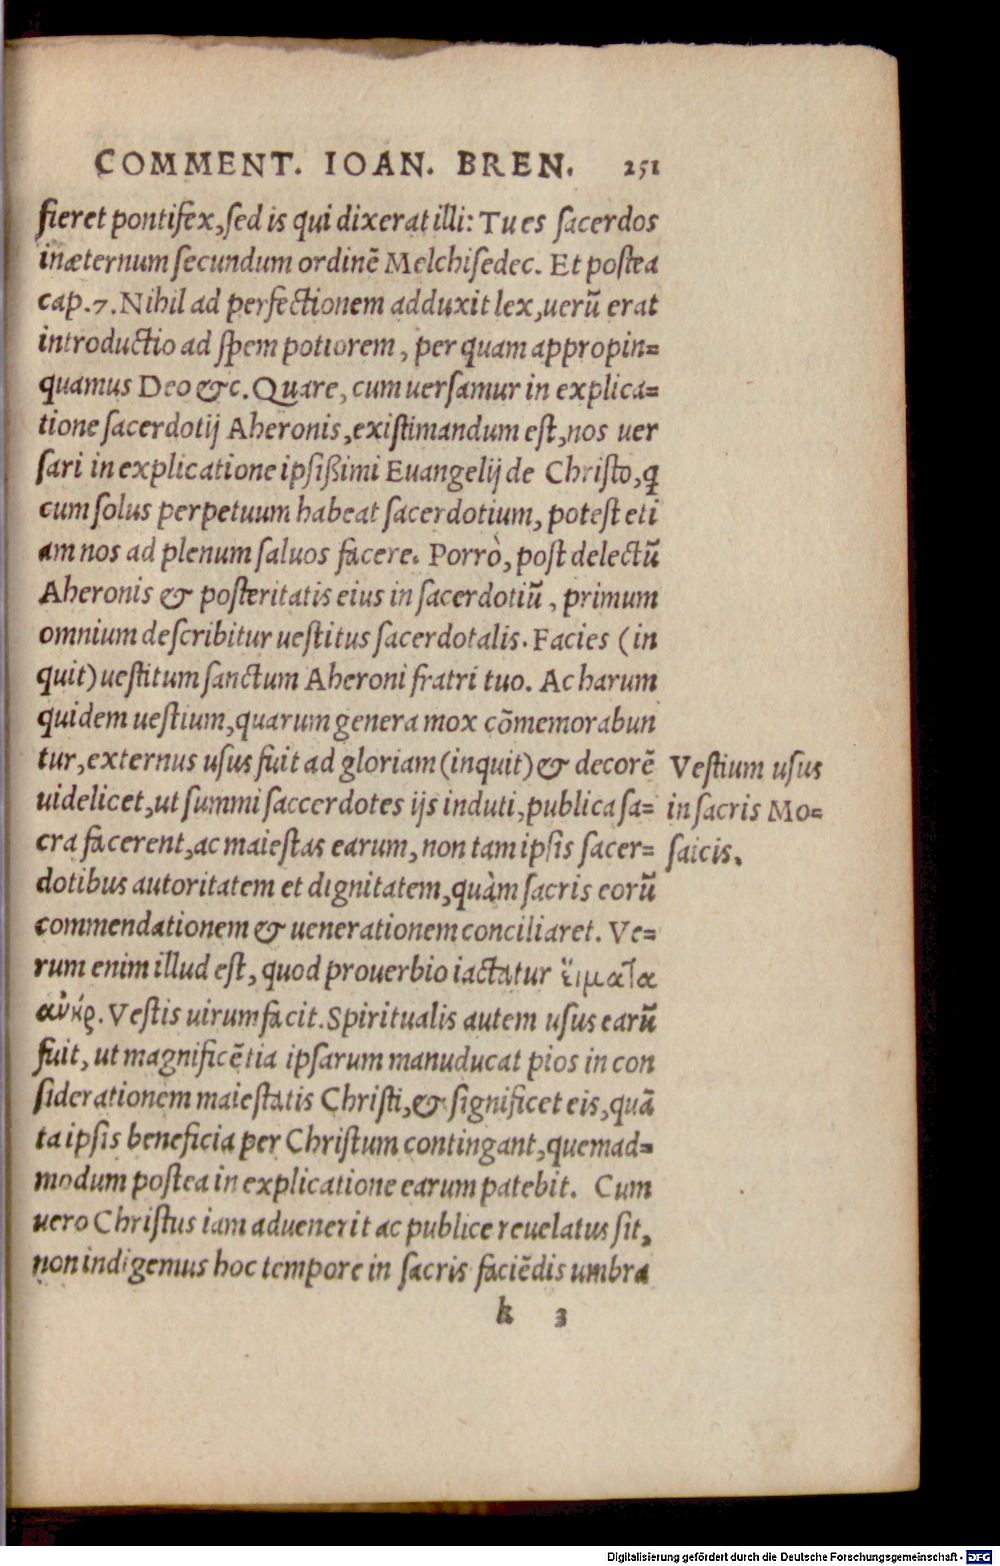 COMMENT. IOAN. BREN. 251
fieret pontifex, sed is qui dixerat illi: Tu es sacerdos
in æternum secundum ordinē Melchisedec. Et postea
cap. 7. Nihil ad perfectionem adduxit lex, uerū erat
introductio ad spem potiorem, per quam appropin=
quamus Deo &c. Quare, cum uersamur in explica=
tione sacerdotij Aheronis, existimandum est, nos uer
sari in explicatione ipsißimi Euangelij de Christo, ꝗ
cum solus perpetuum habeat sacerdotium, potest eti
am nos ad plenum saluos facere. Porrò, post delectū
Aheronis & posteritatis eius in sacerdotiū, primum
omnium describitur uestitus sacerdotalis. Facies (in
quit) uestitum sanctum Aheroni fratri tuo. Ac harum
quidem uestium, quarum genera mox cōmemorabun
tur, externus usus fuit ad gloriam (inquit) & decorē
uidelicet, ut summi saccerdotes ijs induti, publica sa=
cra facerent, ac maiestas earum, non tam ipsis sacer=
dotibus autoritatem et dignitatem, quàm sacris eorū
commendationem & uenerationem conciliaret. Ve=
rum enim illud est, quod prouerbio iactatur ἵιματα
ἀνήρ. Vestis uirum facit. Spiritualis autem usus earū
fuit, ut magnificētia ipsarum manuducat pios in con
siderationem maiestatis Christi, & significet eis, quā
ta ipsis beneficia per Christum contingant, quemad=
modum postea in explicatione earum patebit. Cum
uero Christus iam aduenerit ac publice reuelatus sit,
non indigemus hoc tempore in sacris faciēdis umbra
k 3
Vestium usus
in sacris Mo=
saicis.
Digitalisierung gefördert durch die Deutsche Forschungsgemeinschaft - DFG